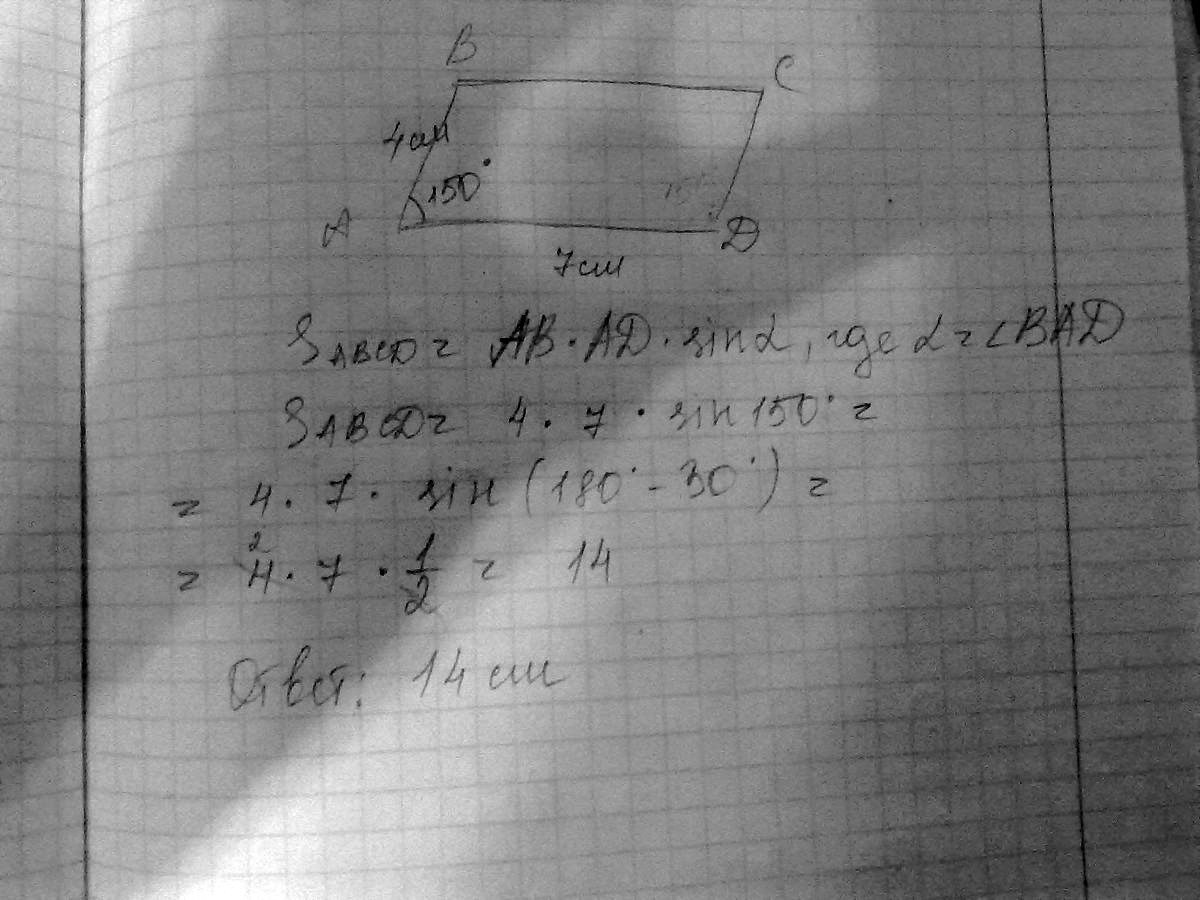 B
C
4см
150°
A
D
7см
SABCD = AB · AD · sin α, где α = ∠BAD
SABCD = 4 · 7 · sin 150° =
= 4 · 7 · sin (180° - 30°) =
2
= 4 · 7 · 1/2 = 14
Ответ: 14 см